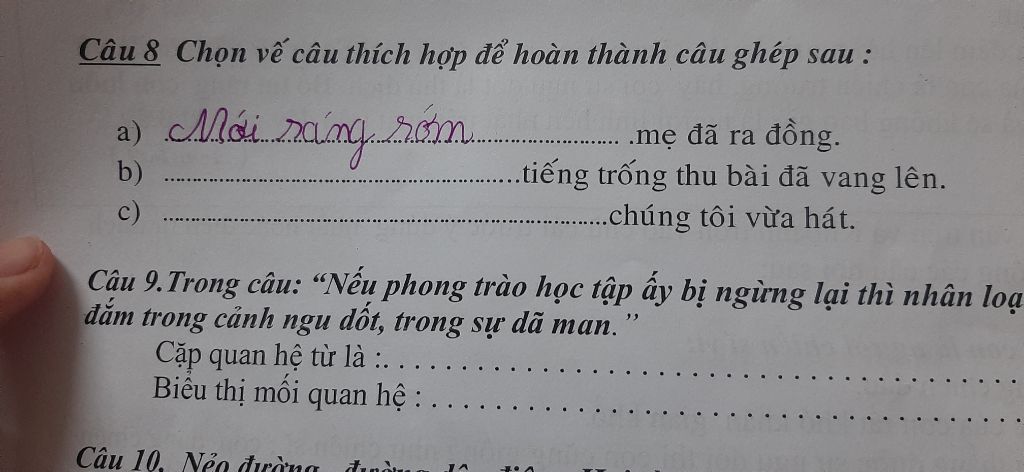 Câu 8 Chọn vế câu thích hợp để hoàn thành câu ghép sau :
a) Mới sáng sớm .mẹ đã ra đồng.
b) .tiếng trống thu bài đã vang lên.
c) .chúng tôi vừa hát.
Câu 9. Trong câu: “Nếu phong trào học tập ấy bị ngừng lại thì nhân loạ
đắm trong cảnh ngu dốt, trong sự dã man.”
Cặp quan hệ từ là :
Biểu thị mối quan hệ :
Câu 10. Nẻo đường